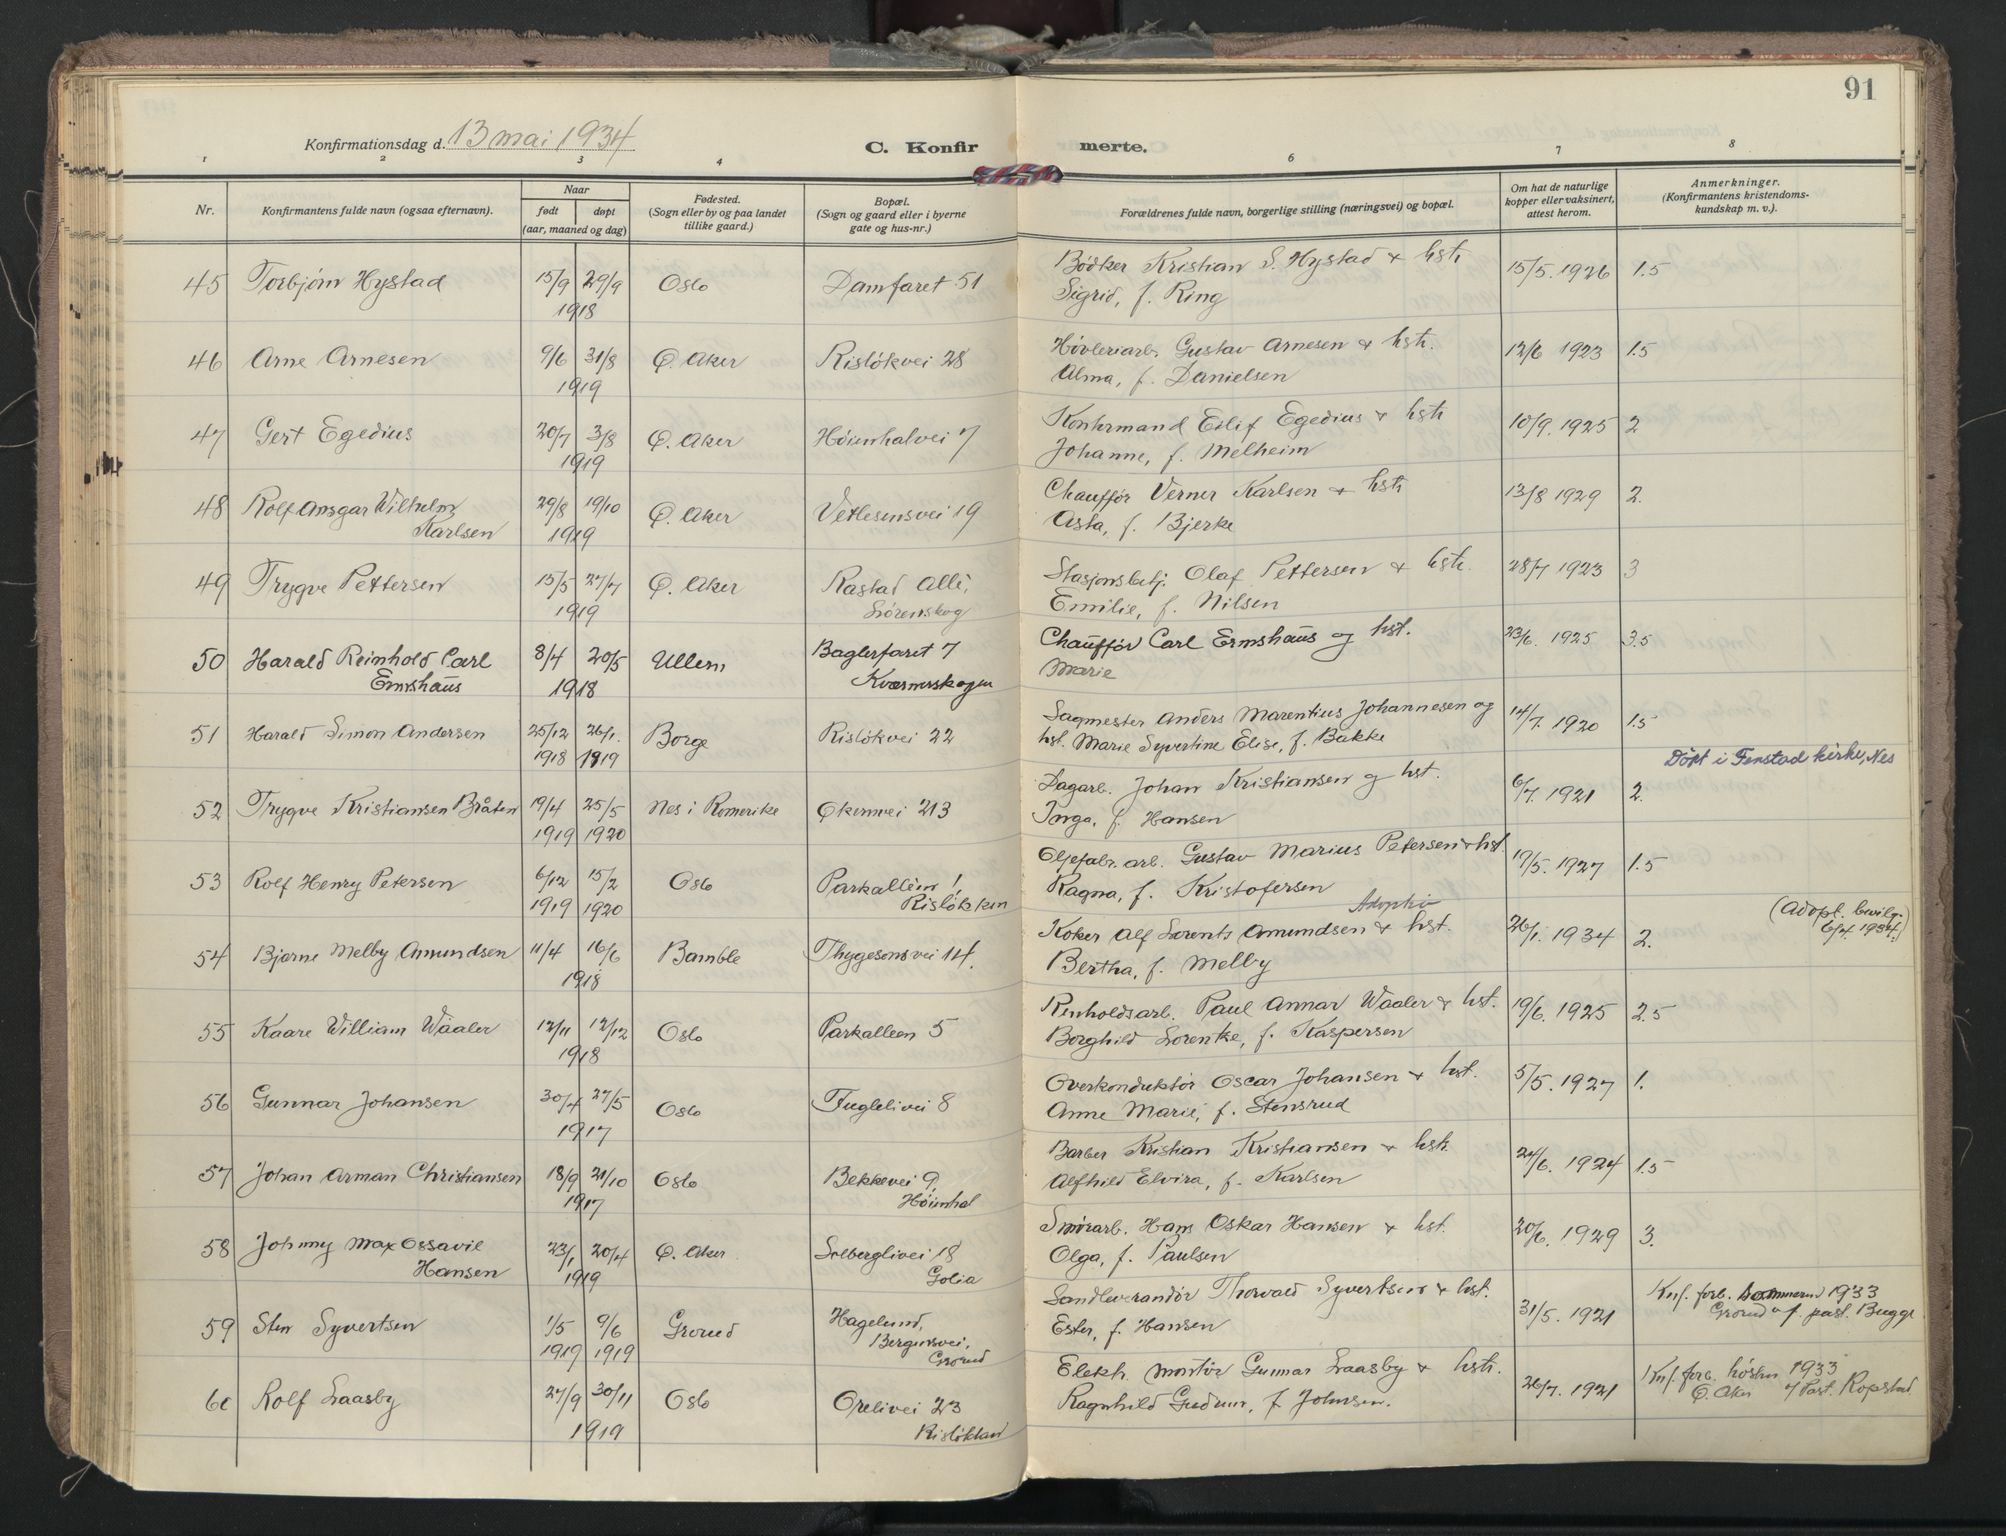 91
Konfirmationsdag d. 13 mai 1934
C. Konfirmerte.
1 2 3 4 6 7 8
Nr.
Konfirmantens fulde navn (ogsaa efternavn).
Naar
født døpt
(aar, maaned og dag)
Fødested.
(Sogn eller by og paa landet
tillike gaard.)
Bopæl.
(Sogn og gaard eller i byerne
gate og hus-nr.)
Forældrenes fulde navn, borgerlige stilling (næringsvei) og bopæl.
Om hat de naturlige
kopper eller vaksinert,
attest herom.
Anmerkninger.
(Konfirmantens kristendoms-
kundskap m. v.).
45 Torbjörn Hystad 15/9 29/9 1918 Oslo Damfaret 51 Bödker Kristian S. Hystad & hstr 15/5. 1926 1.5
Sigrid, f. Ring
46 Arne Arnesen 9/6 31/8 1919 Ö. Aker Rislökvei 28 Hövleriarb. Gustav Arnesen & hstr. 12/6 1923 1.5
Alma, f. Danielsen
47 Gert Egedius 20/7 3/8 1919 Ö. Aker Höienhalvei 7 Kontormand Eilif Egedius & hstr 10/9. 1925 2
Johanne, f. Melheim
48 Rolf Ansgar Wilhelm 29/8 19/10 1919 Ö. Aker Vetlesensvei 19 Chaufför Verner Karlsen & hstr 13/8 1929 2.
Karlsen Asta, f. Bjerke
49 Trygve Pettersen 15/5 27/7 1919 Ö. Aker Rastad Allé, Stasjonsbetj. Olaf Pettersen & hstr. 28/7 1923 3
Lörenskog Emilie, f. Nilsen
50 Harald Reinhold Carl 8/4 20/5 1918 Ullern Baglerfaret 7 Chaufför Carl Ermshaus og hst. 23/6. 1925 3.5
Ermshaus Kværnerskogen Marie
51 Harald Simon Andersen 25/12 1918 26/1. 1919 Borge Rislökvei 22 Sagmester Anders Marentius Johannesen og 14/7. 1920 1.5
hst. Marie Syvertine Elise, f. Bakke
Döpt i Fenstad kirke, Nes
52 Trygve Kristiansen Bråten 19/4 1919 25/5 1920 Nes i Romerike Økernvei 213 Dagarb. Johan Kristiansen og hst. 6/7. 1921 2.
Inga, f. Hansen
53 Rolf Henry Petersen 6/12 1919 15/2 1920 Oslo Parkalléen 1, Oljefabr. arb. Gustav Marius Petersen & hst. 19/5. 1927 1.5
Rislökken Ragna, f. Kristofersen
Adoptiv
54 Bjarne Melby Amundsen 11/4 16/6 1918 Bamble Thygesonsvei 14. Koker Alf Lorents Amundsen & hst. 26/1. 1934 2. (Adopt. bevilg.
6/4 1934.)
Bertha, f. Melby
55 Kaare William Waaler 12/11 12/12 1918 Oslo Parkalleen 5 Renholdsarb. Paul Annar Waaler & hst. 19/6. 1925 2.5
Borghild Lorentze, f. Kaspersen
56 Gunnar Johansen 30/4 27/5 1917 Oslo Fuglelivei 8 Overkonduktör Oscar Johansen & hst. 5/5. 1927 1.
Anne Marie, f. Stensrud
57 Johan Arman Christiansen 18/9 21/10 1917 Oslo Bekkevei 9, Barber Kristian Kristiansen & hstr. 24/6. 1924 1.5
Höienhal Alfhild Elvira, f. Karlsen
58 Johnny Max Ossavil 23/1 20/4 1919 Ö. Aker Solberglivei 18 Hans Oskar Hansen & hst. 20/6. 1929 3.
Hansen Golia Olga, f. Paulsen
59 Sten Syvertsen 1/5 1919 9/6 1919 Grorud Hagelund, Sandleverandör Thorvald Syvertsen & hst. 31/5. 1921 Knf. forb. sommeren 1933
Bergensvei, Ester, f. Hansen Grorud v/ past. Bugge
Grorud
60 Rolf Laasby 27/9 30/11 1919 Oslo Orelivei 23 Elektr. montör Gunnar Laasby & hstr. 26/7. 1921 Knf. forb. hösten 1933
Rislökken Ragnhild Gudrun, f. Johnsen. Ö. Aker v/ Past. Ropstad